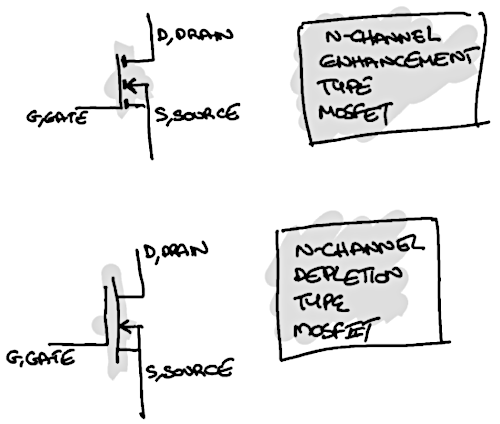 D,DRAIN
G,GATE
S,SOURCE
N-CHANNEL
ENHANCEMENT
TYPE
MOSFET
D,DRAIN
G,GATE
S,SOURCE
N-CHANNEL
DEPLETION
TYPE
MOSFET